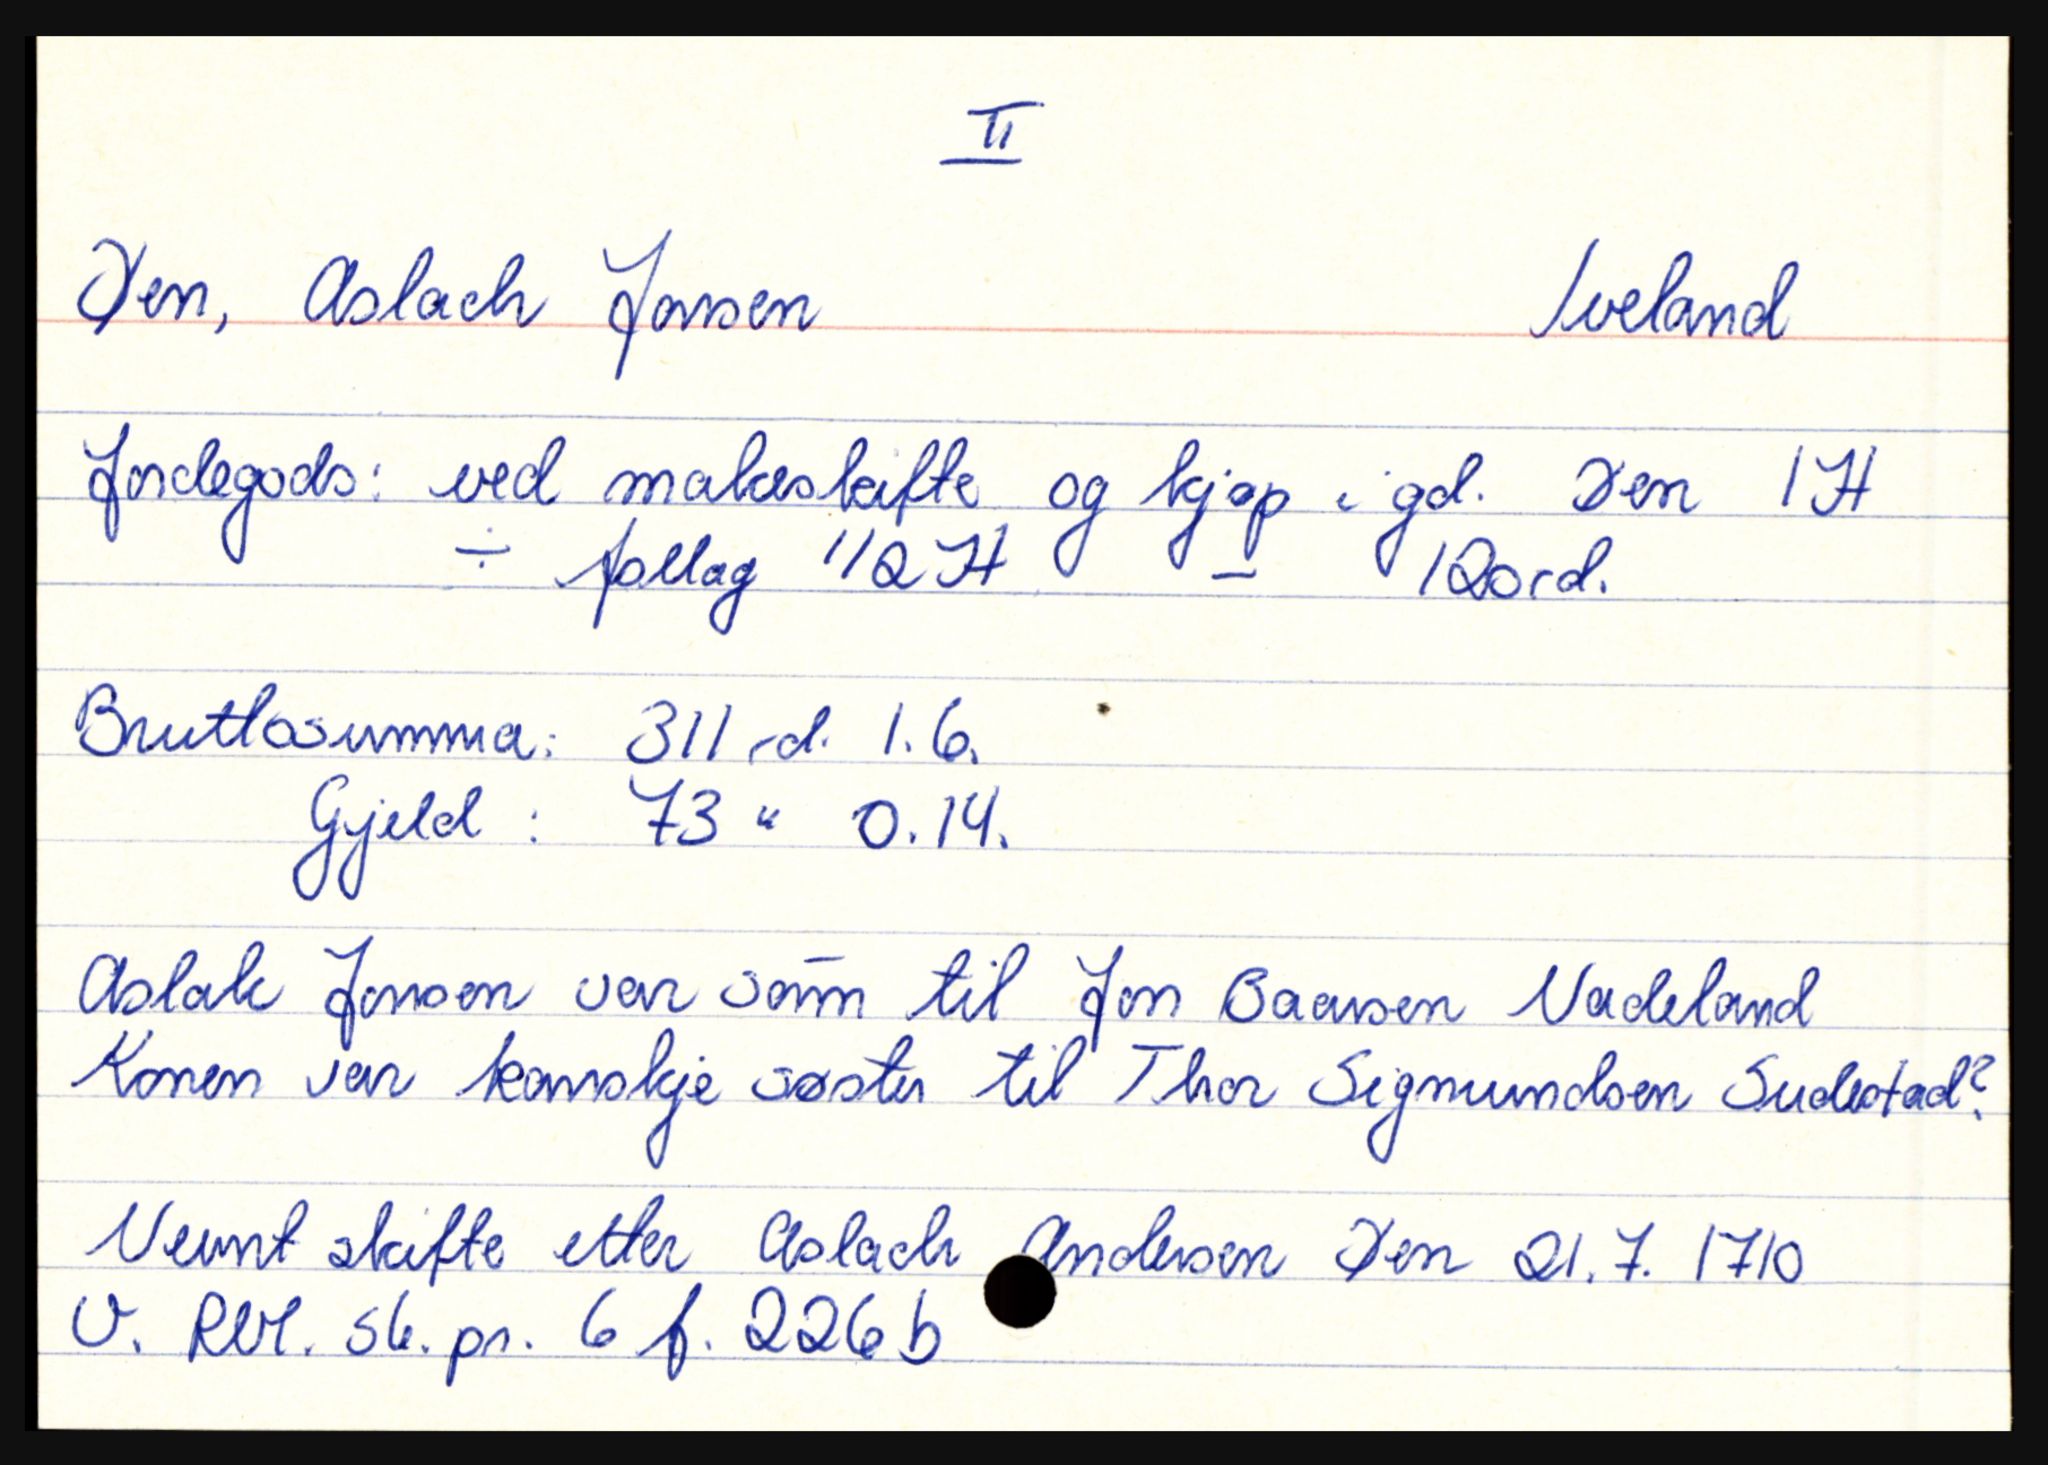 II
Øen, Aslach Jonsen Iveland
Jordegods: ved makeskifte og kjøp i gd. Øen 1 H
÷ follag 1/2 H – 120 rd.
Bruttosumma: 311 rd. 1.6.
Gjeld : 73 " 0.14.
Aslak Jonsen var sønn til Jon Baarsen Vadeland
Konen var kanskje søster til Thor Sigmundsen Sudestad?
Nevnt skifte etter Aslach Andersen Øen 21.7.1710
V. Rbl. sk. pr. 6 f. 226 b